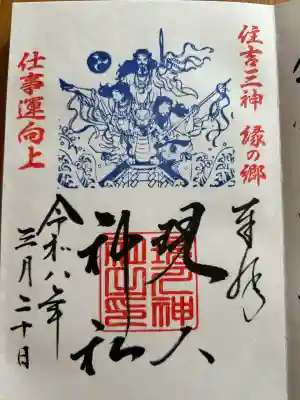 住吉三神 縁の郷
仕事運向上
奉拝
現人
神社
令和八年
三月二十日